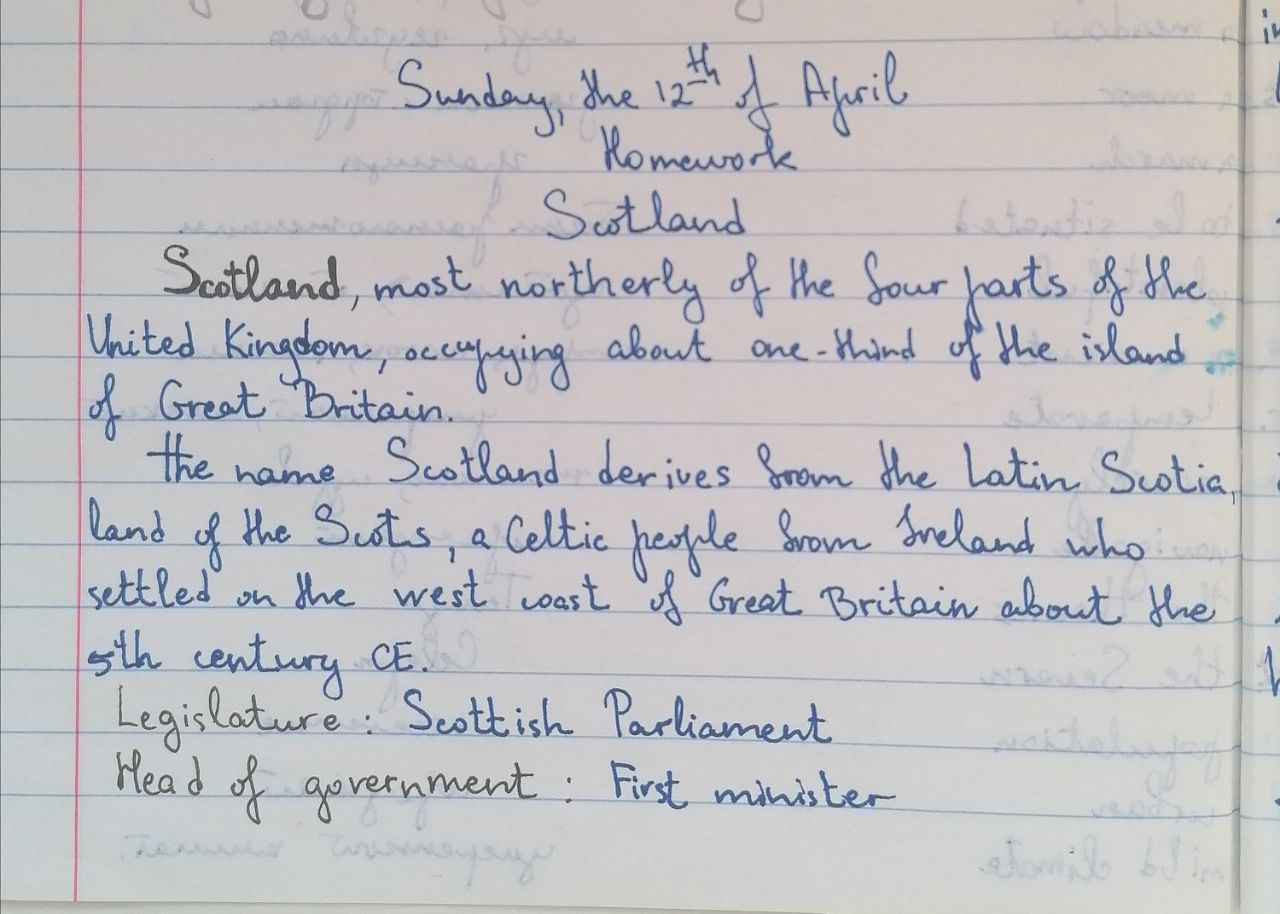 Sunday, the 12th of April
Homework
Scotland
Scotland, most northerly of the four parts of the
United Kingdom, occupying about one-third of the island
of Great Britain.
the name Scotland derives from the Latin Scotia,
land of the Scots, a Celtic people from Ireland who
settled on the west coast of Great Britain about the
5th century CE.
Legislature: Scottish Parliament
Head of government: First minister